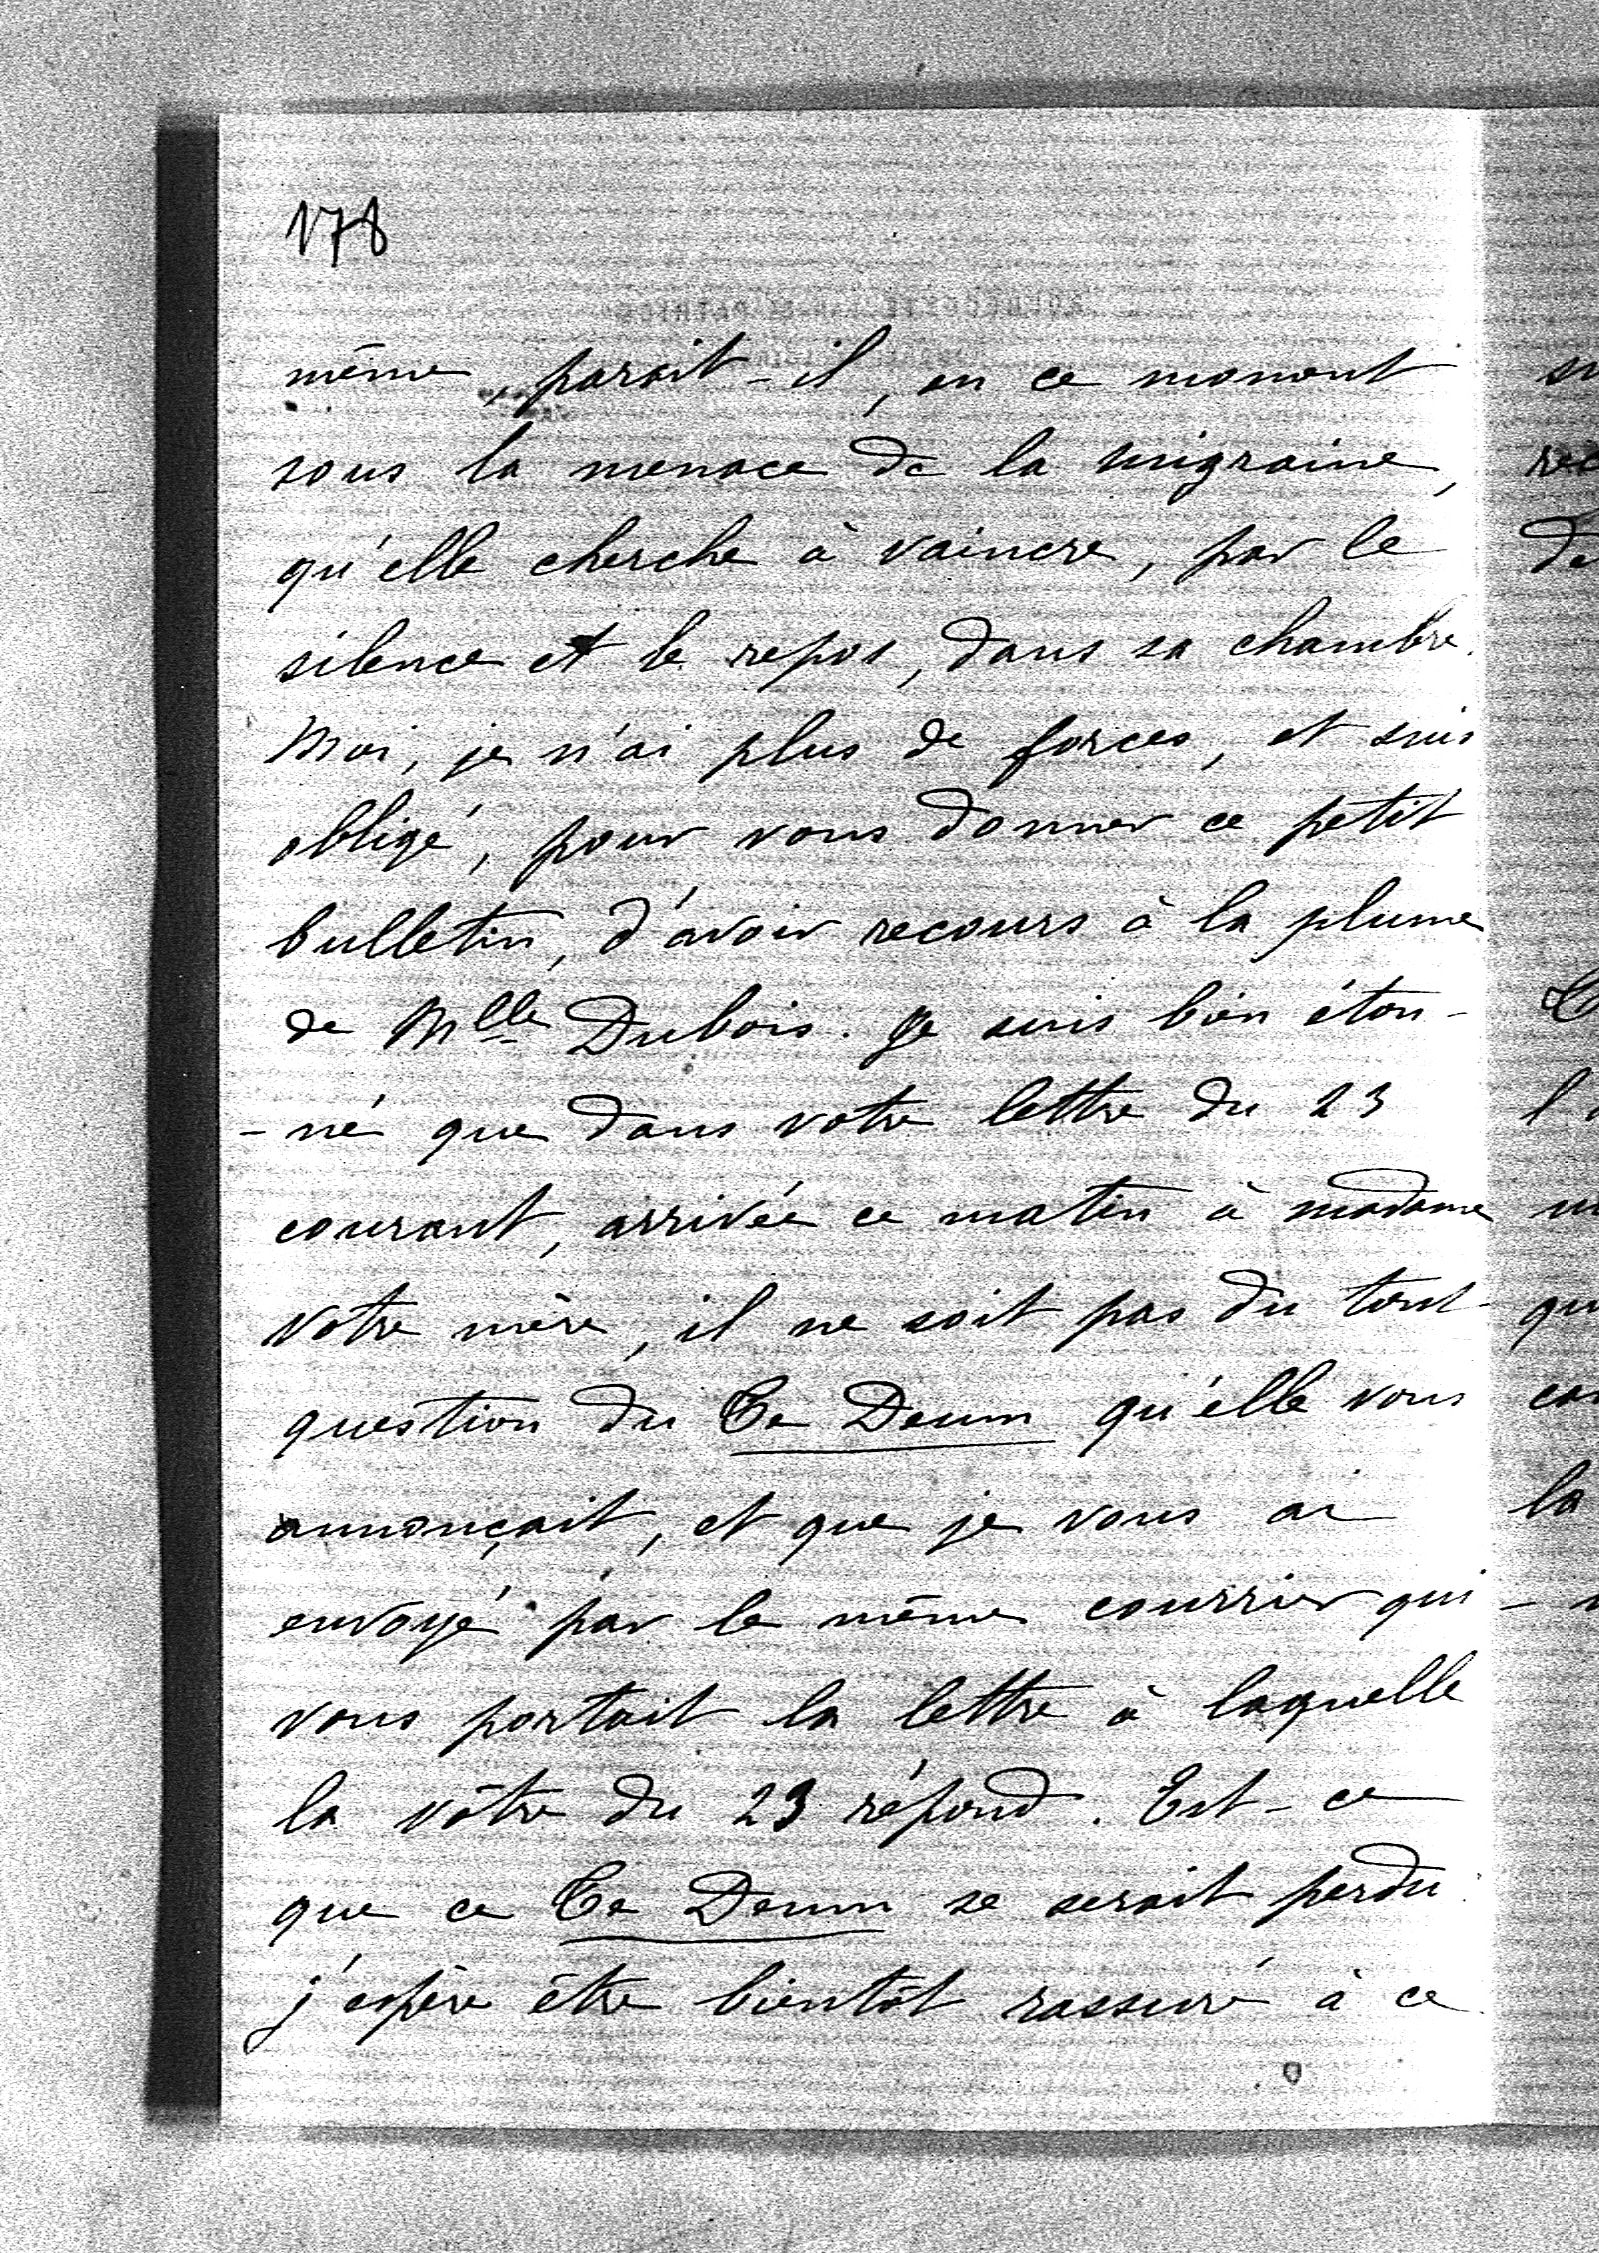 178
même, parait-il, en ce moment
sous la menace de la migraine,
qu'elle cherche à vaincre, par le
silence et le repos, dans sa chambre.
Moi, je n'ai plus de forces, et suis
obligé, pour vous donner ce petit
bulletin, d'avoir recours à la plume
de Mlle Dubois. Je suis bien éton-
-né que dans votre lettre du 23
courant, arrivée ce matin à madame
votre mère, il ne soit pas du tout
question du Te Deum qu'elle vous
annonçait, et que je vous ai
envoyé par le même courrier qui
vous portait la lettre à laquelle
la vôtre du 23 répond. Est-ce
que ce Te Deum se serait perdu
j'espère être bientôt rassuré à ce